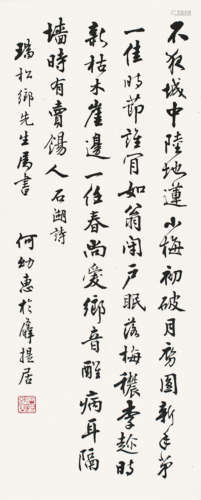 不夜城中陸地蓮小梅初破月初圓新年第
一佳時節誰肯如翁閉戶眠落梅穠李趁時
新枯木崖邊一任春尚愛鄉音醒病耳隔
墻時有賣餳人 石湖詩
瑞松鄉先生屬書 何幼惠於羼提居